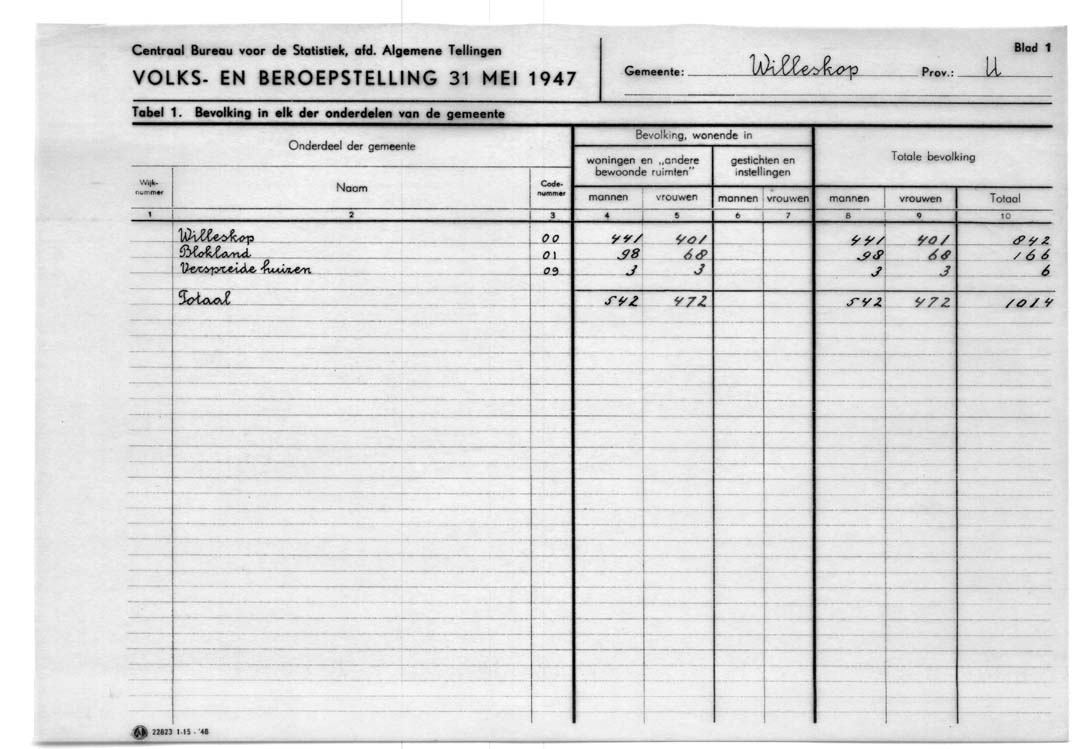 Centraal Bureau voor de Statistiek, afd. Algemene Tellingen
VOLKS- EN BEROEPSTELLING 31 MEI 1947
Gemeente: Willeskop Prov.: U
Blad 1
Tabel 1. Bevolking in elk der onderdelen van de gemeente
Onderdeel der gemeente
Bevolking, wonende in
Totale bevolking
woningen en „andere bewoonde ruimten"
gestichten en instellingen
Wijk-nummer Naam Code-nummer mannen vrouwen mannen vrouwen mannen vrouwen Totaal
1 2 3 4 5 6 7 8 9 10
Willeskop 00 441 401 441 401 842
Blokland 01 98 68 98 68 166
Verspreide huizen 09 3 3 3 3 6
Totaal 542 472 542 472 1014
22823 1-15 - '48